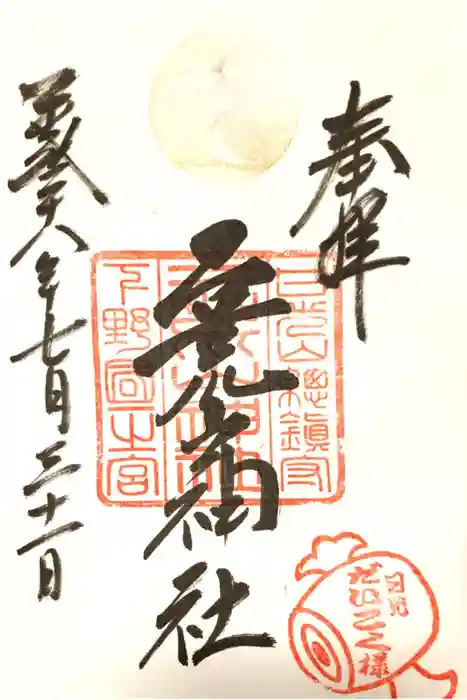 奉拝
日光山總鎮守
二荒山神社
二荒山神社
下野國一之宮
平成廿八年七月三十一日
日光
だいこく様